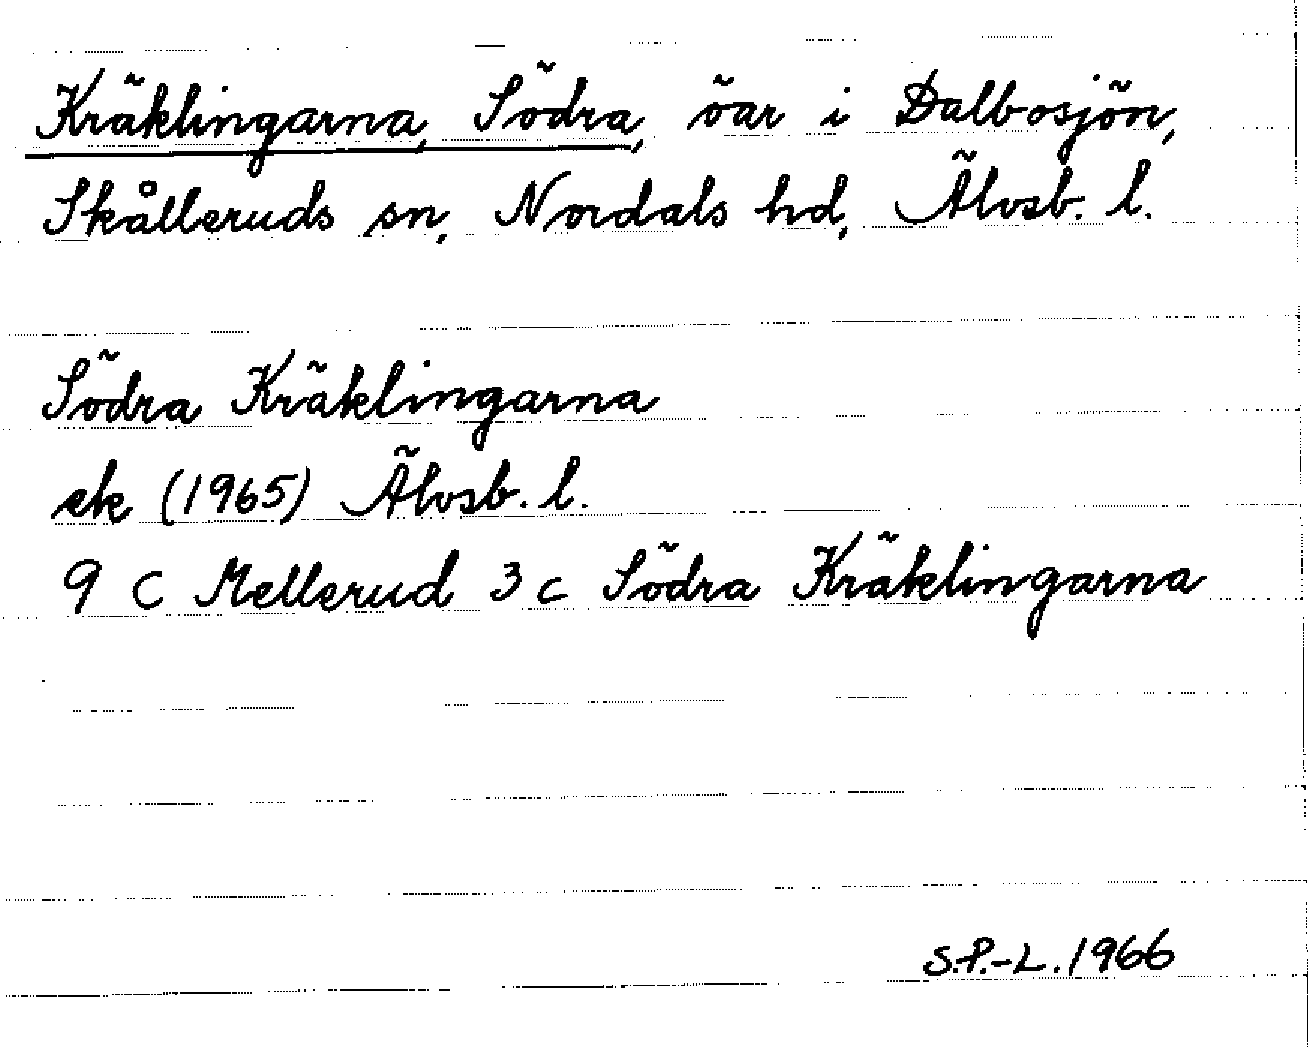 Kräklingarna, Södra, öar i Dalbosjön,
Skålleruds sn, Nordals hd, Älvsb. l.
Södra Kräklingarna
ek (1965) Älvsb. l.
9 C Mellerud 3 c Södra Kräklingarna
S.P.-L. 1966